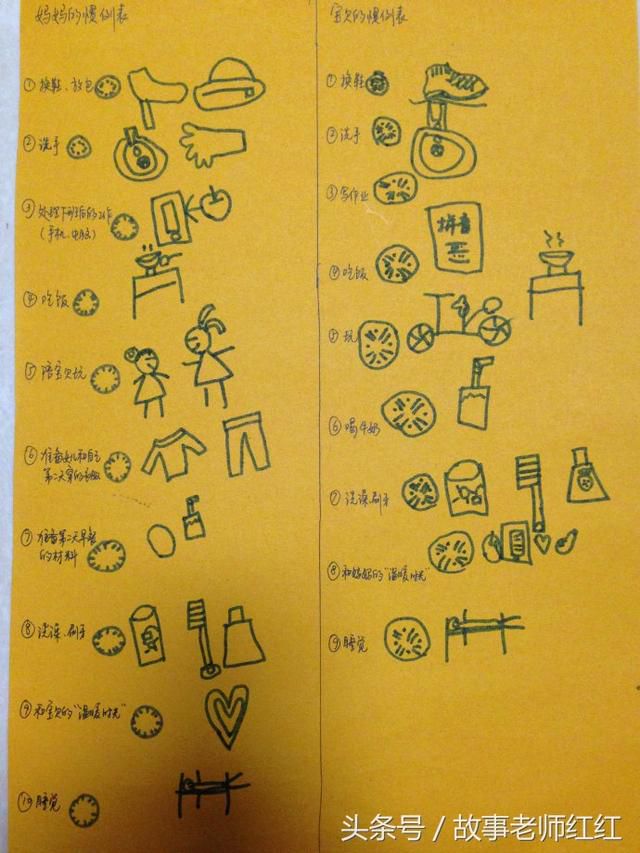 妈妈的惯例表
①换鞋、放包
②洗手
③处理下班后的工作
（手机、电脑）
④吃饭
⑤陪宝贝玩
⑥准备女儿和自己
第二天穿的衣服
⑦准备第二天早餐
的材料
⑧洗澡、刷牙
⑨和宝贝的“温暖时光”
⑩睡觉
宝贝的惯例表
①换鞋
②洗手
③写作业
拼音
④吃饭
⑤玩
⑥喝牛奶
⑦洗澡刷牙
⑧和妈妈的“温暖时光”
⑨睡觉
头条号 / 故事老师红红